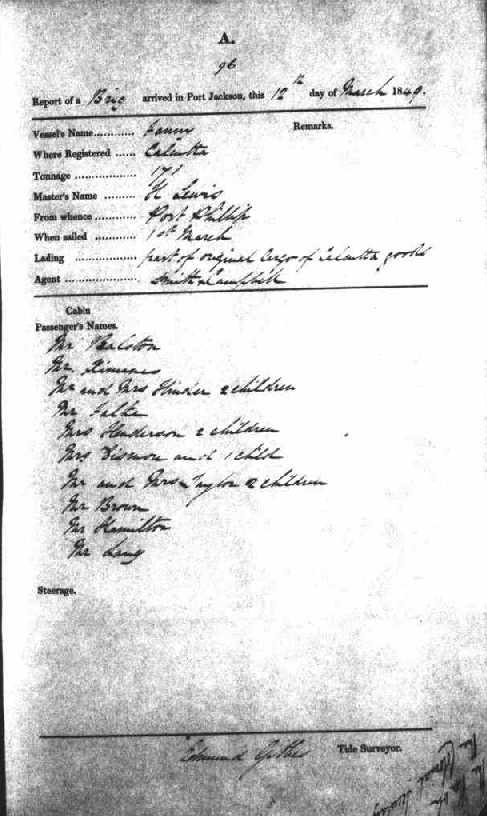 A.
96
Report of a Brig arrived in Port Jackson, this 12th day of March 1849.
Vessel's Name........... Fanny Remarks.
Where Registered ...... Calcutta
Tonnage ................. 171
Master's Name ......... H Lewis
From whence............ Port Phillip
When sailed ............ 1st March
Lading ................. part of original Cargo of Calcutta goods
Agent ..................... Smith & Campbell
Cabin
Passenger's Names.
Mr Ralston
Mr Ximenes
Mr and Mrs 2 children
Mr
Mrs Henderson 2 children
Mrs and 1 child
Mr and Mrs Taylor 2 children
Mr Brown
Mr Hamilton
Mr Lang
Steerage.
Edmund Tide Surveyor.